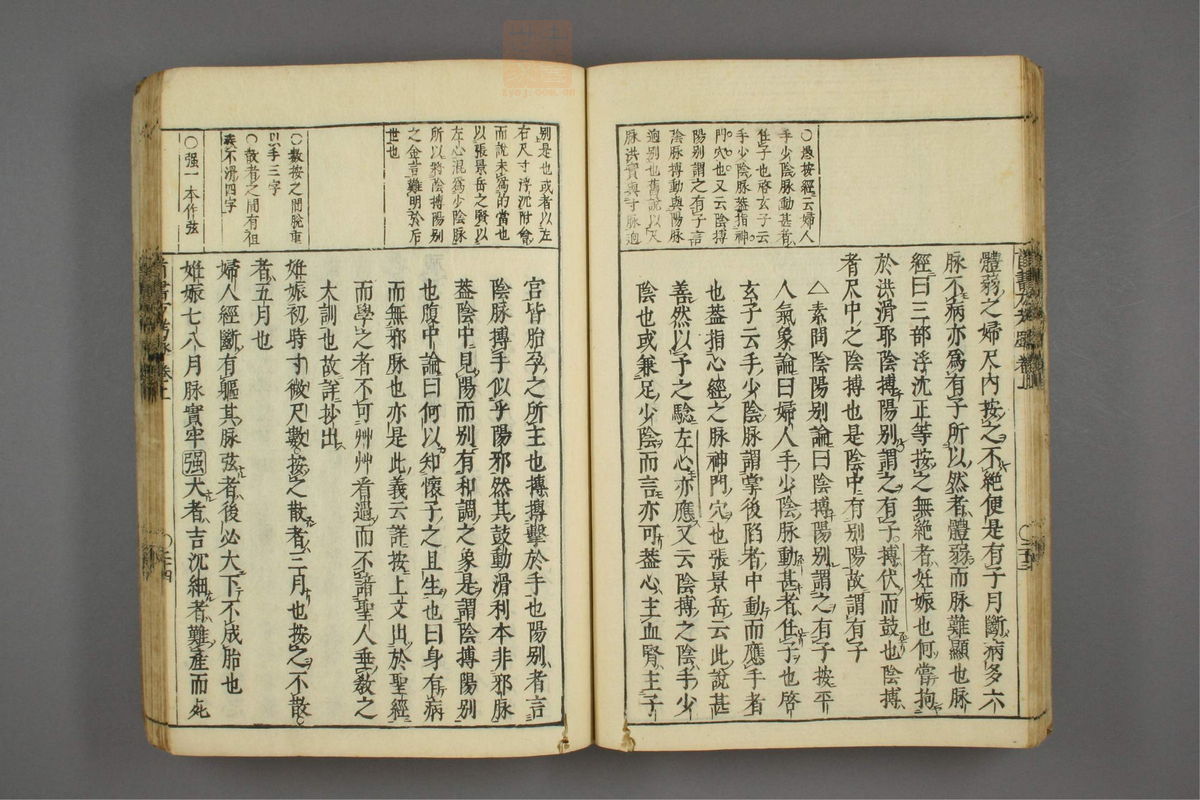 ○愚按經云婦人
手少陰脉動甚者
任子也啓玄子云
手少陰脉葢指神
門穴也又云陰搏
陽別謂之有子言
陰脉搏動與陽脉
迥別也舊說以尺
脉洪實與寸脉迥
體弱之婦尺內按之不絶便是有子月斷病多六
脉不病亦爲有子所以然者體弱而脉難顯也脉
經曰三部浮沈正等按之無絶者妊娠也何當拘
於洪滑耶陰搏陽別謂之有子搏伏而鼓也陰搏
者尺中之陰搏也是陰中有別陽故謂有子
△素問陰陽別論曰陰搏陽別謂之有子按平
人氣象論曰婦人手少陰脉動甚者任子也啓
玄子云手少陰脉謂掌後陷者中動而應手者
也葢指心經之脉神門穴也張景岳云此說甚
善然以予之驗左心亦應又云陰搏之陰手少
陰也或兼足少陰而言亦可葢心主血腎主子
別是也或者以左
右尺寸浮沉附會
而說未爲的當也
以張景岳之賢以
左心混爲少陰脉
所以將陰搏陽別
之金言難明於后
世也
○數按之間脫重
以手三字
○散者之間有徂
疾不滑四字
○强一本作弦
宮皆胎孕之所主也搏搏擊於手也陽別者言
陰脉搏手似乎陽邪然其鼓動滑利本非邪脉
葢陰中見陽而別有和調之象是謂陰搏陽別
也腹中論曰何以知懷子之且生也曰身有病
而無邪脉也亦是此義云詳按上文出於聖經
而學之者不可艸艸看過而不諳聖人垂敎之
大訓也故詳抄出
妊娠初時寸微尺數按之散者三月也按之不散
者五月也
婦人經斷有軀其脉弦者後必大下不成胎也
妊娠七八月脉實牢强大者吉沉細者難產而死